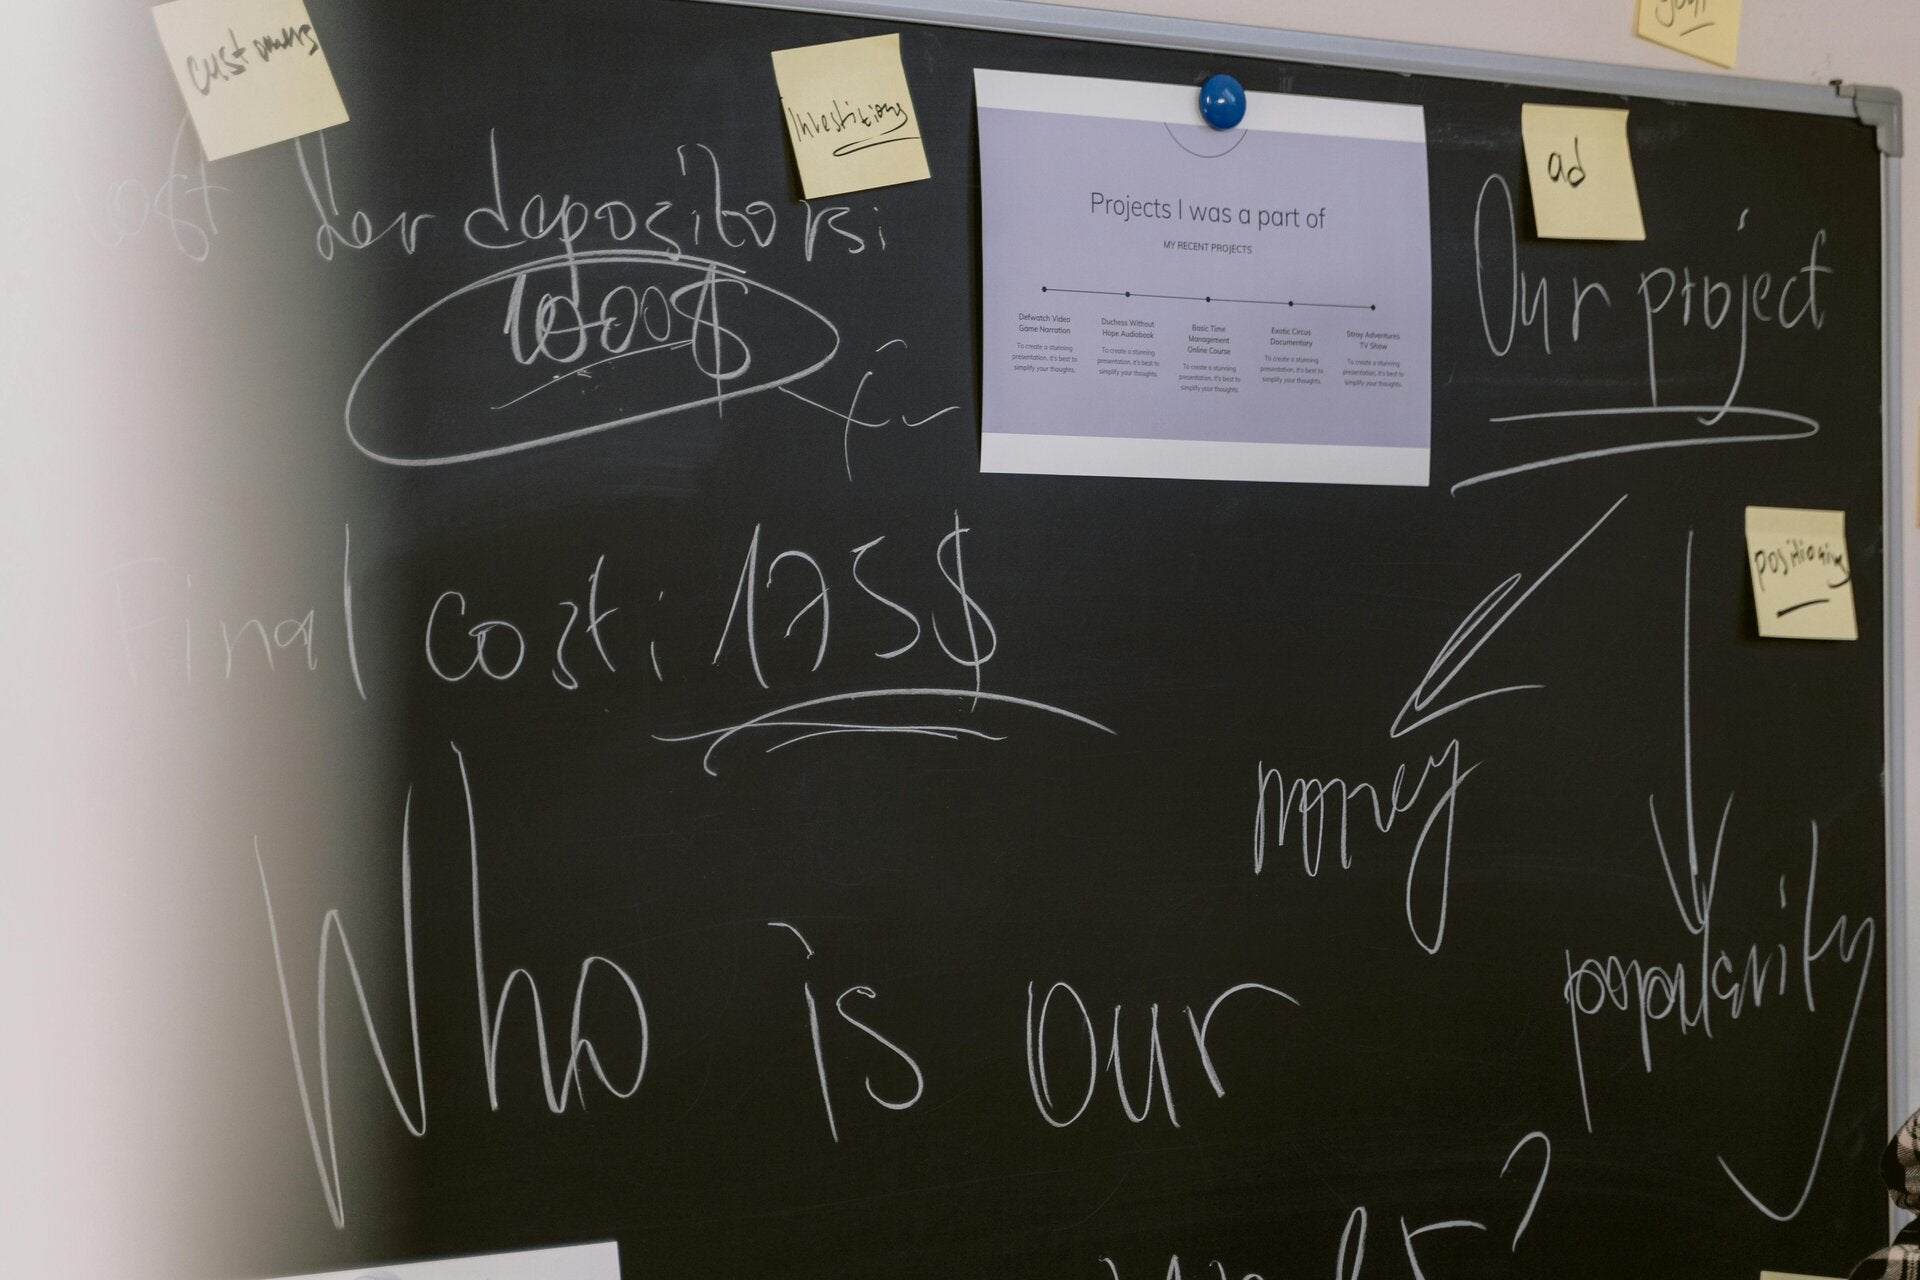 customers
Investitions
ad
positioning
cost der depositors:
1000$
Final cost: 175$
Who is our
?
Projects I was a part of
MY RECENT PROJECTS
Defwatch Video
Game Narration
To create a stunning
presentation, it's best to
simplify your thoughts.
Duchess Without
Hope Audiobook
To create a stunning
presentation, it's best to
simplify your thoughts.
Basic Time
Management
Online Course
To create a stunning
presentation, it's best to
simplify your thoughts.
Exotic Circus
Documentary
To create a stunning
presentation, it's best to
simplify your thoughts.
Stray Adventures
TV Show
To create a stunning
presentation, it's best to
simplify your thoughts.
Our project
money
popularity